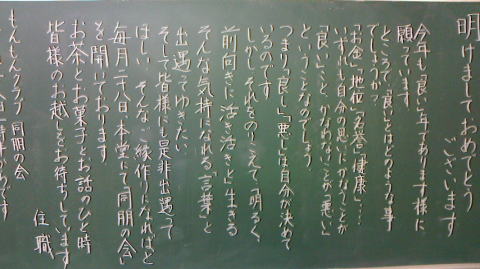 明けましておめでとう
ございます
今年も「良い」年であります様に
願っています
ところで「良い」とはどのような事
でしょうか?
「お金」「地位」「名誉」「健康」…
いずれも自分の思いにかなうことが
「良い」こと、かなわないことが「悪い」
ということなのでしょう
つまり「良し」「悪し」は自分が決めて
いるのです
しかしそれをのりこえて「明るく、
前向きに活き活きと」生きる
そんな気持になれる「言葉」と
出遇ってゆきたい
そして皆様にも是非出遇って
ほしい そんなご縁作りになればと
毎月二十八日、本堂にて「同朋の会」
を開いております
お茶とお菓子とお話のひと時
皆様のお越しをお待ちしています
住職
もんもとクラブ 同朋の会